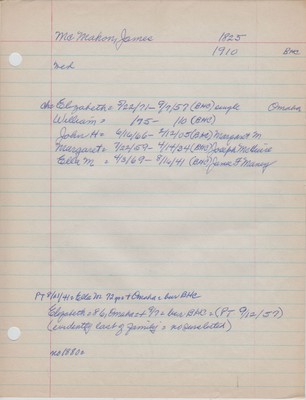 Mc Mahon, James 1825
1910 BHC
med
cho Elizabeth = 9/22/71 - 9/7/57 (BHC) single Omaha
William = 1875 - 110 (BHC)
John H = 6/16/66 - 2/12/05 (BHC) Margaret M.
Margaret = 7/22/59 - 4/14/34 (BHC) Joseph McGuire
Ella M = 4/3/69 - 8/16/41 (BHC) James F
PT 8/21/41 = Ella M 72 yrs + Omaha = bur BHC
Elizabeth = 86, Omaha = + 9/7 = bur BHC = (PT 9/12/57)
(evidently last of family = no survivors listed)
no 1880